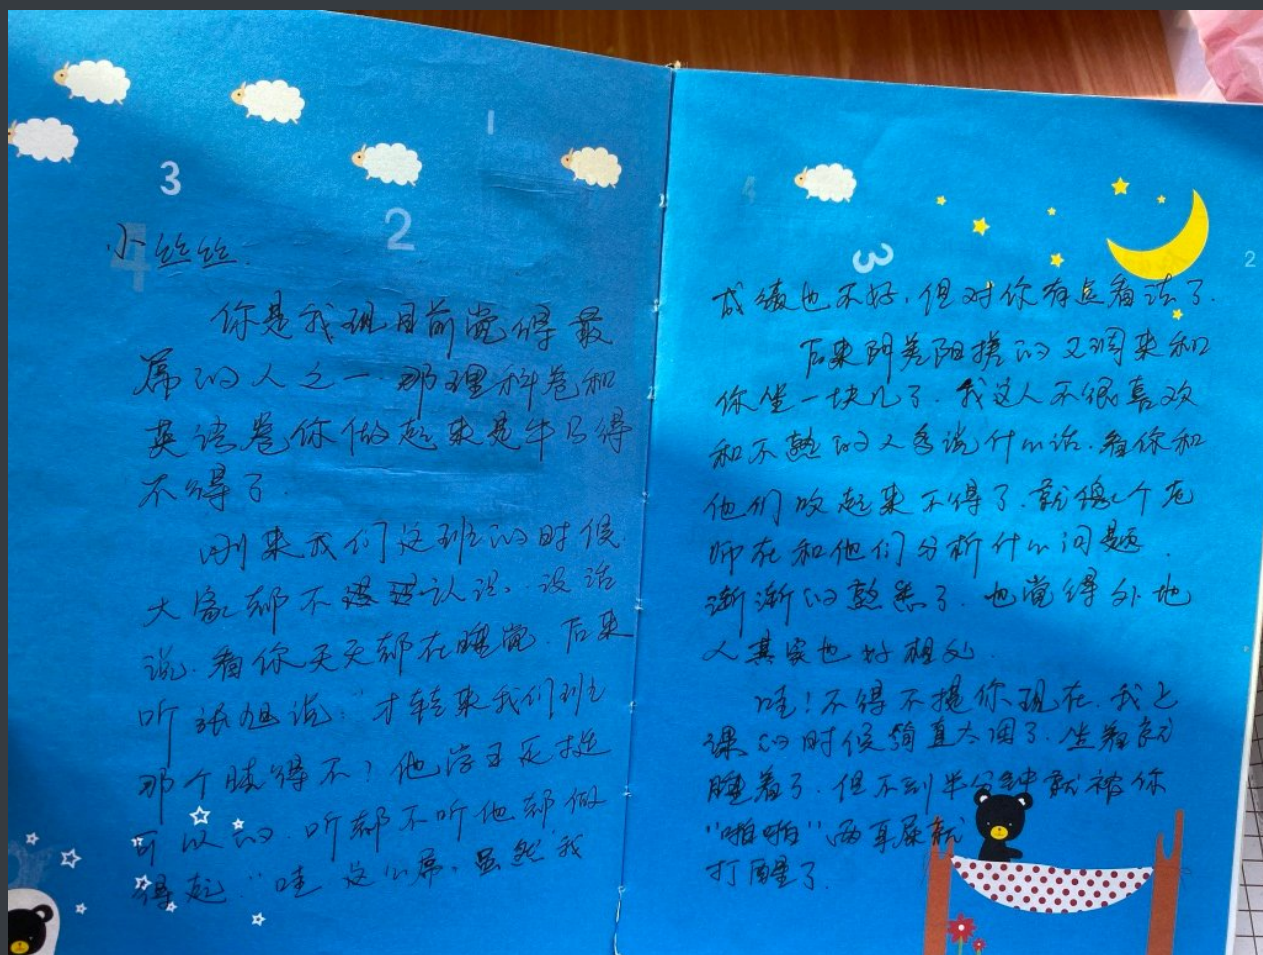 1
3
2
4
小丝丝:
你是我现目前觉得最
屌的人之一 那理科卷和
英语卷你做起来是牛B得
不得了.
刚来我们这班的时候
大家都不认识、没话
说. 看你天天都在睡觉. 后来
听张旭说: "才转来我们班
那个睡得不! 他学习反挺
可以的. 听都不听他都做
得起" 哇 这么屌, 虽然我
4
3
2
成绩也不好, 但对你有点看法了.
后来阴差阳搓的又调来和
你坐一块儿了. 我这人不很喜欢
和不熟的人多说什么话. 看你和
他们吹起来不得了. 就像个老
师在和他们分析什么问题.
渐渐的熟悉了. 也觉得外地
人其实也好相处.
哇! 不得不提你现在. 我上
课的时候简直太困了. 坐着就
睡着了. 但不到半分钟就被你
"啪啪" 两耳屎就
打醒了.